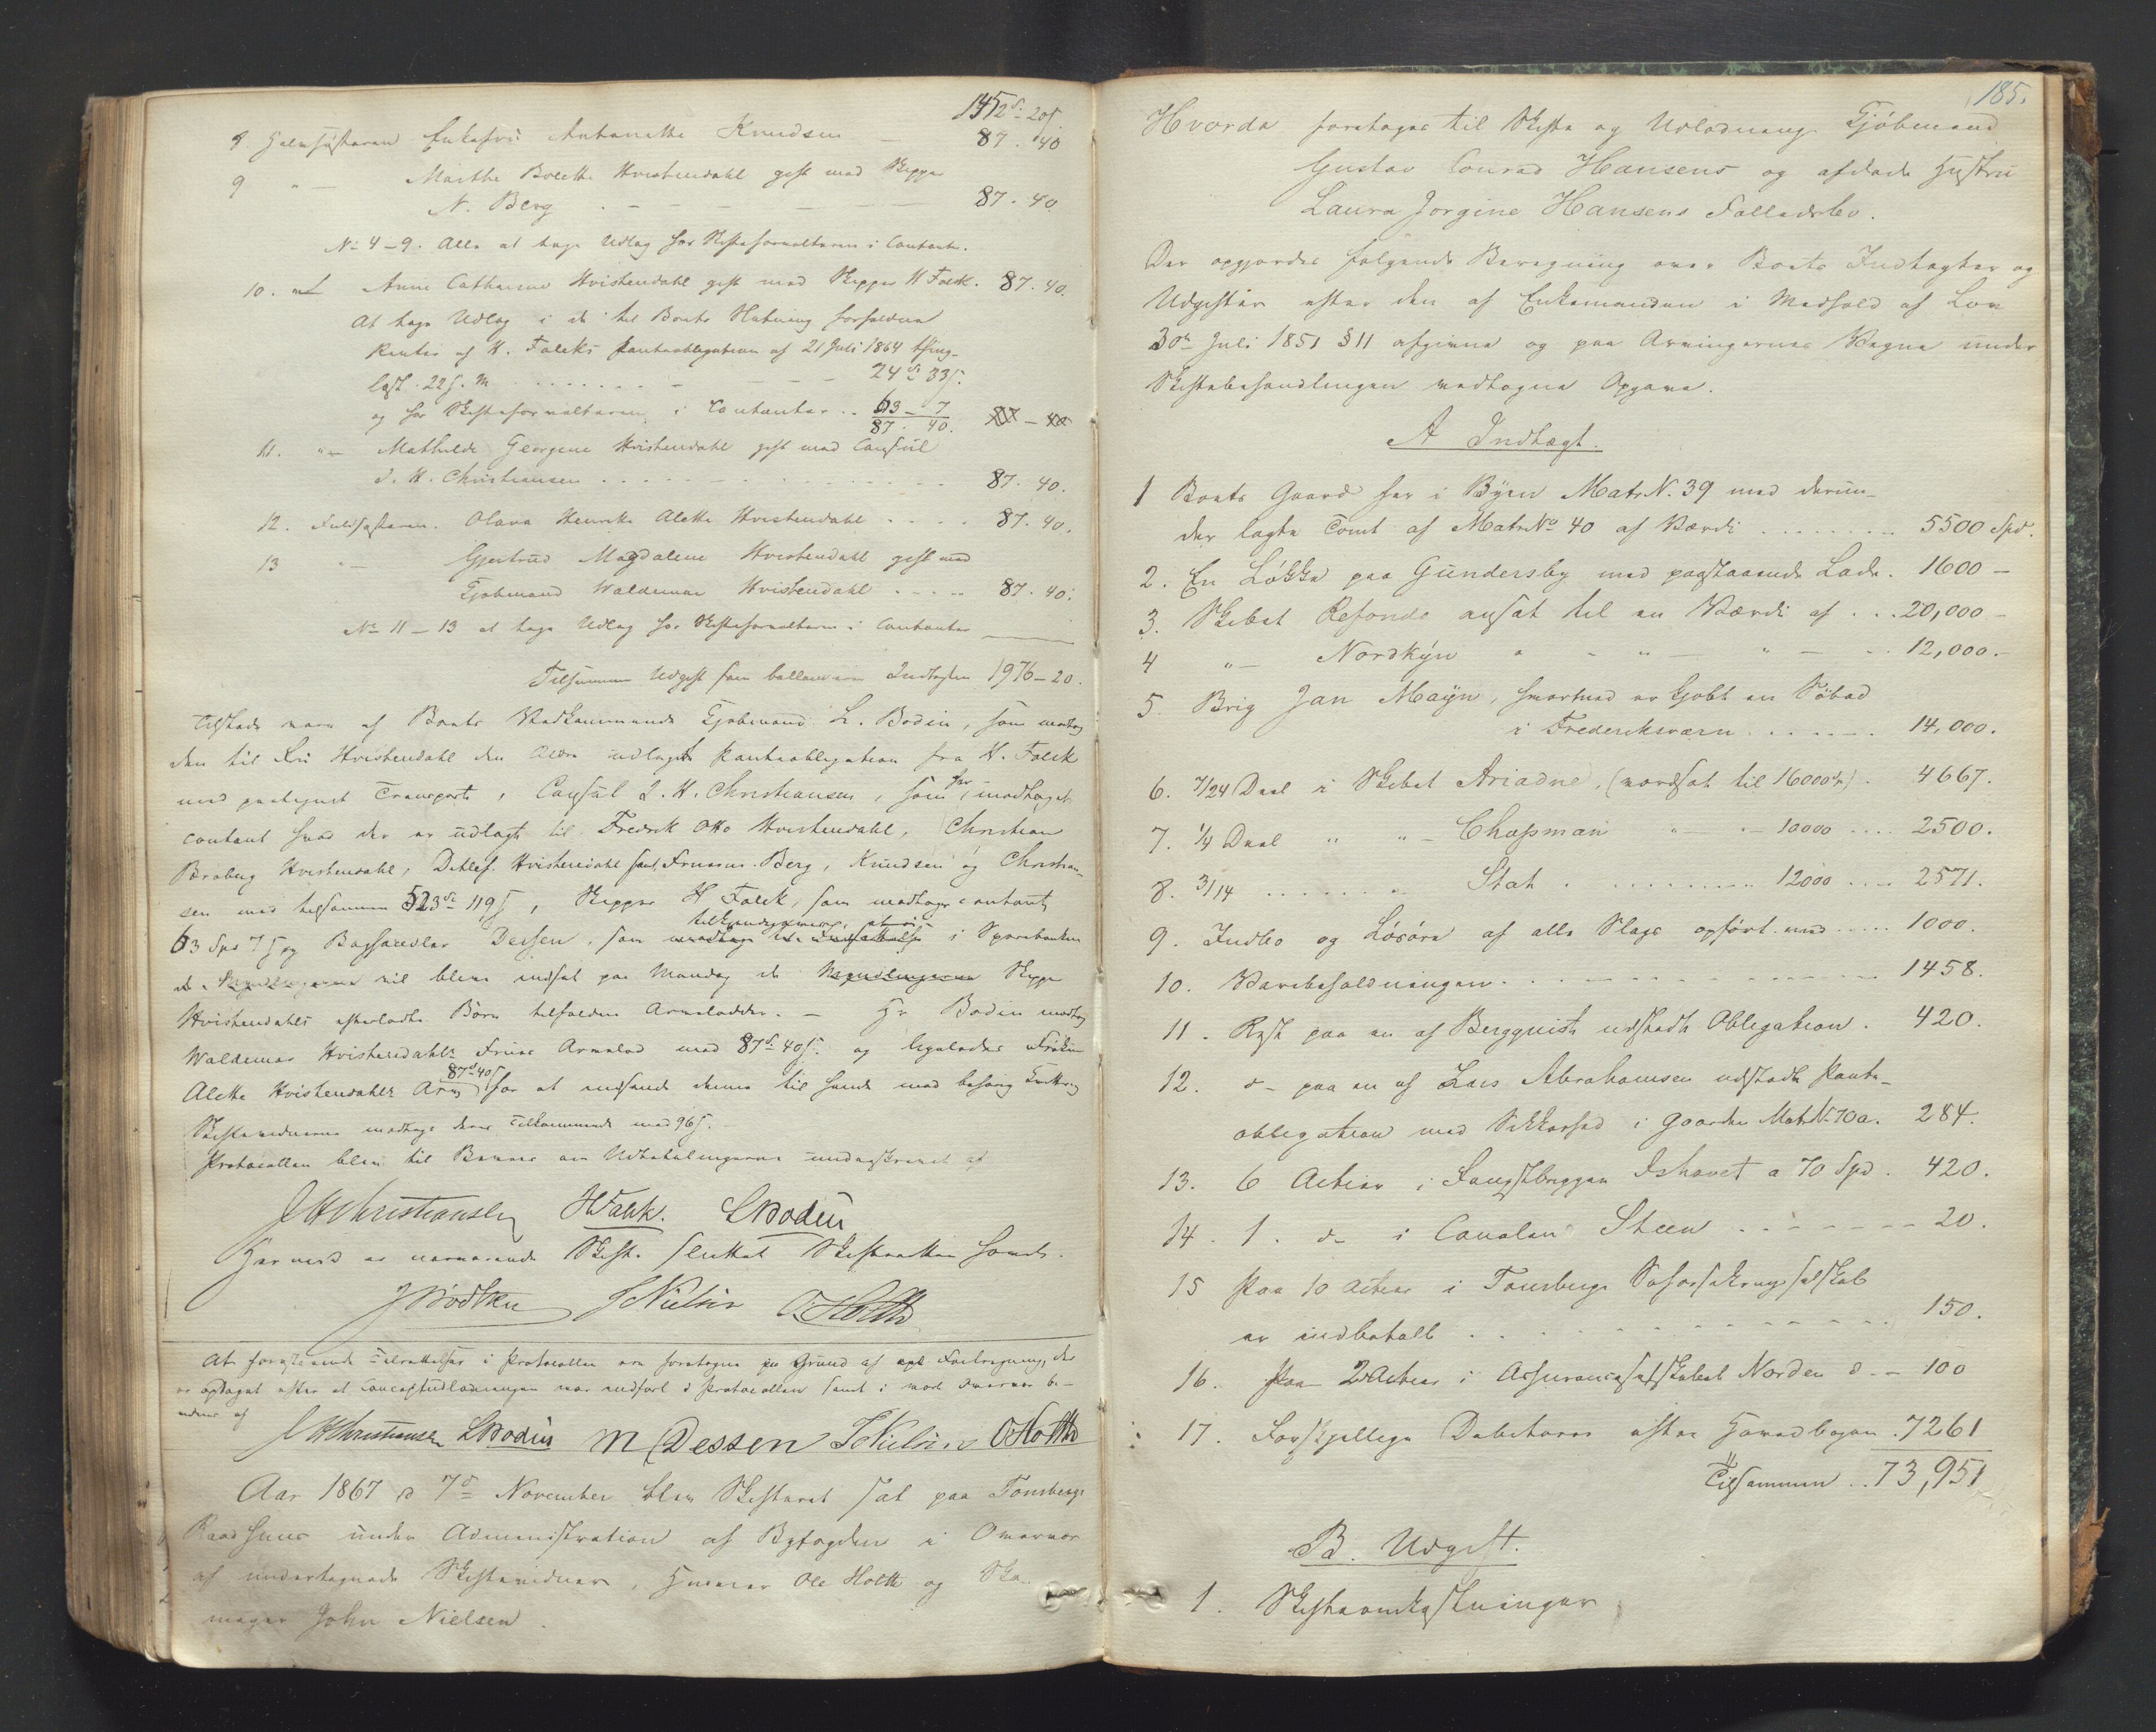 1452 d. 20 s
8. Halvsøsteren Enkefru Antonette Knudsen — 87. 40
9 " — Marthe Bolette Hvistendahl gift med Skipper
N. Berg . — — — — — 87. 40.
No 4–9. Alle at tage Udlæg hos Skifteforvalteren i Contanter.
10. Anne Cathrine Hvistendahl gift med Skipper H Falck. 87. 40.
At tage Udlæg i de til Boets Hævning forfaldne
Renter af H. Falcks Panteobligation af 21 Juli 1864 thing-
læst 22 s. M. . . . . . . — — — 24 d 33 s.
og hos Skifteforvalteren i Contanter . . 63 – 7 87 – 40
87. 40.
11. " — Mathilde Georgine Hvistendahl gift med Consul
J. H. Christiansen . . . . . . . . . 87. 40.
12. Fuldsøsteren. Olava Henrike Alette Hvistendahl . . . . 87. 40.
13 " — Gjertrud Magdalene Hvistendahl gift med
Kjøbmand Waldemar Hvistendahl . . . . 87. 40.
No 11–13 at tage Udlæg hos Skifteforvalteren i Contanter
Tilsammen Udgift som ballancerer Indtægten 1976–20.
Tilstede vare af Boets Vedkommende Kjøbmand L. Bodin, som modtog
den til Fru Hvistendahl den ældre udlagte Panteobligation fra H. Falck
med paategnet Transport, Consul J. H. Christiansen, som har modtaget
contant hvad der er udlagt til Fredrik Otto Hvistendahl, Christian
Braberg Hvistendahl, Detlef Hvistendahl samt Fruerne Berg, Knudsen og Christian-
sen med tilsammen 523 d 119 s, Skipper H Falck, som modtager contant
tilkjendegiver, at
63 Spd 7 s og Bogholder Dessen, som i Sparebanken
vil blive indsat paa Mandag de Skipper
Hvistendahls efterladte Børn tilfaldne Arvelodder. — Hr Bodin modtog
Waldemar Hvistendahls Frues Arvelod med 87 d. 40 s. og ligeledes Frøken
87 d 40 s
Alette Hvistendahls Arv for at indsende denne til hende mod behørig Qvittering
Skiftevidnerne modtage deres Tilkommende med 96 s. —
Protocollen blev til Bevis om Udbetalingerne undertegnet af
JHChristiansen HFalck. LBodin
Hermed er nærværende Skifte sluttet Skifteretten hævet.
JBødtker JNielsen OHolth
At foregaaende Tilrettelser i Protocollen ere foretagne paa Grund af Feilregning, der
er opdaget efter at Conceptudlodningen var indført i Protocollen samt i vort Overvær be-
vidnes af
JHChristiansen LBodin M Dessen JNielsen OHolth
Aar 1867 d 7de November blev Skifteret sat paa Tønsbergs
Raadhuus under Administration af Byfogden i Overvær
af undertegnede Skiftevidner, Hrrer Ole Holth og Sko-
mager John Nielsen.
185.
Hvorda foretoges til Skifte og Udlodning Kjøbmand
Gustav Conrad Hansens og afdøde Hustru
Laura Jørgine Hansens Fælledsbo.
Der opgjordes følgende Beregning over Boets Indtægter og
Udgifter efter den af Enkemanden i Medhold af Lov
30te Juli 1851 § 11 afgivne og paa Arvingernes Vegne under
Skiftebehandlingen vedtagne Opgave.
A Indtægt.
1 Boets Gaard her i Byen Matr N. 39 med derun-
der lagte Tomt af Matr No 40 af Værdi . . . . . . . 5500 Spd.
2. En Løkke paa Gundersby med paastaaende Lade. 1600 –
3. Skibet Refondo ansat til en Værdi af . . . 20,000 –
4 " — Nordkyn " — " — " — . . 12,000. –
5. Brig Jan Mayn, hvortned er kjøbt en Søbod
i Frederiksværn . . . . . . . 14,000.
6. 7/24 Deel i Skibet Ariadne, (værdsat til 16000 d) . 4667.
7. 1/4 Deel " " — Chapman " — 10000 . . . . 2500.
8. 3/14 . . . . . . " Stat . . . . . . . . . . 12000 . . . . 2571.
9. Indbo og Løsøre af alle Slags opført med . . . . . 1000.
10. Varebeholdningen . . . . . . . . . . . . . 1458.
11. Rest paa en af Bergquist udstedt Obligation . 420.
12. d – paa en af Lars Abrahamsen udstedt Pante-
obligation med Sikkerhed i Gaarden Matr No 70a. 284.
13. 6 Actier i Fangstbriggen Ishavet a 70 Spd . 420.
14. 1. do i Canalen Steen . . . . . . . . 20.
15 Paa 10 Actier i Tønsbergs Søforsikringsselskab
er indbetalt . . . . . . . . . . . . . 150.
16. Paa 2 Actier i Assuranceselskabet Norden d. – 100
17. Forskjellige Debitorer efter Hovedbogen . 7261
Tilsammen . . 73,951
B. Udgift.
1. Skifteomkostninger